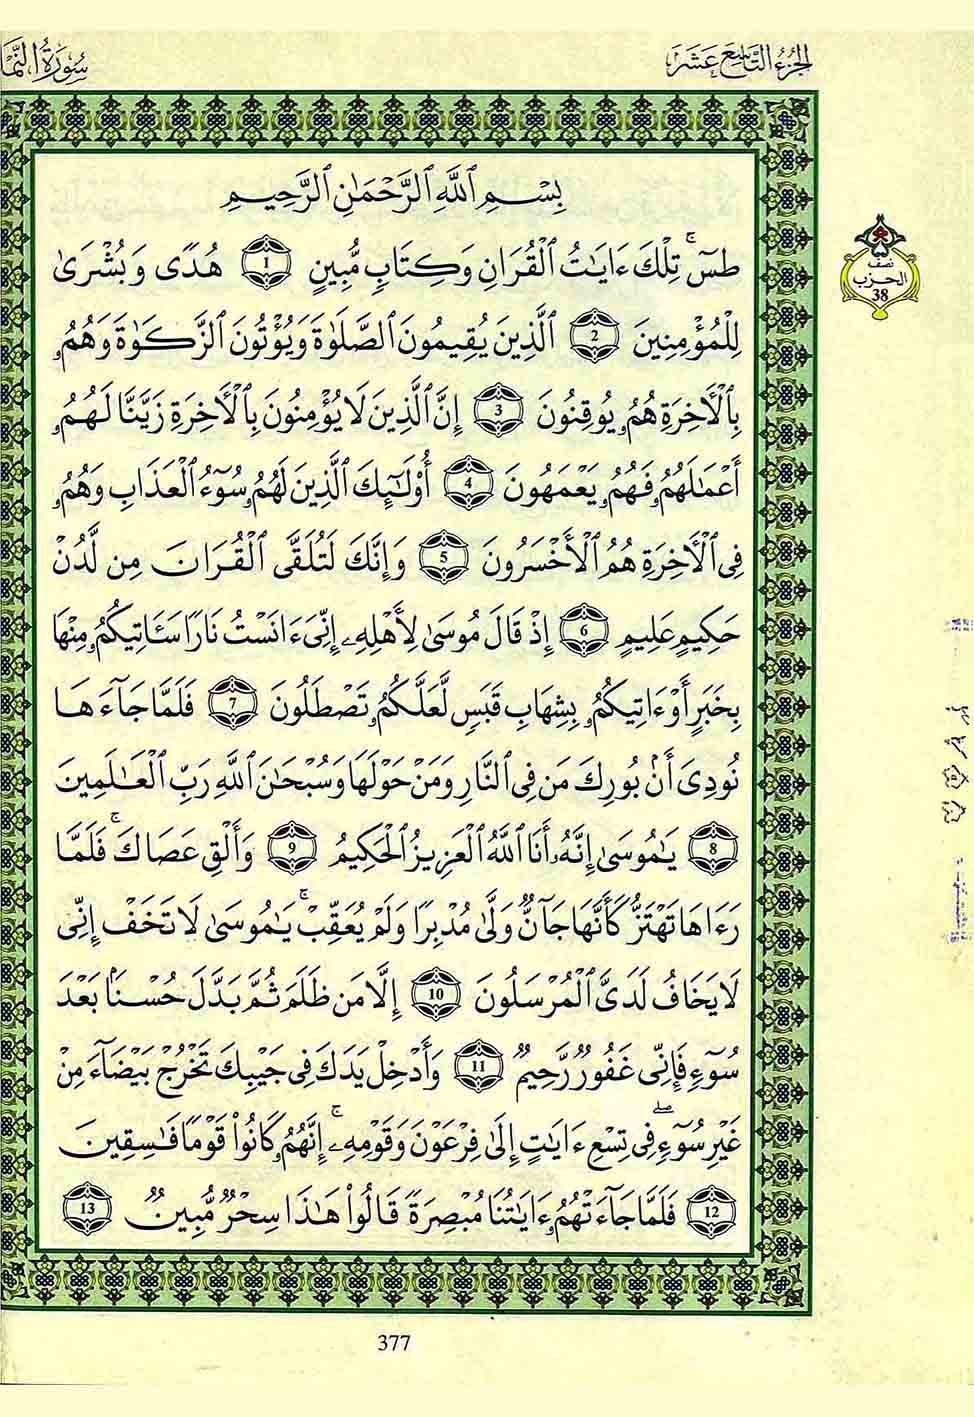 الجزء التاسع عشر
سورة النمل
بِسْمِ ٱللَّهِ ٱلرَّحْمَٰنِ ٱلرَّحِيمِ
طسٓۚ تِلْكَ ءَايَٰتُ ٱلْقُرَانِ وَكِتَابٍ مُّبِينٍ 1 هُدًى وَبُشْرَىٰ
لِلْمُؤْمِنِينَ 2 ٱلَّذِينَ يُقِيمُونَ ٱلصَّلَوٰةَ وَيُؤْتُونَ ٱلزَّكَوٰةَ وَهُمُۥ
بِٱلْأَخِرَةِ هُمُۥ يُوقِنُونَ 3 إِنَّ ٱلَّذِينَ لَا يُؤْمِنُونَ بِٱلْأَخِرَةِ زَيَّنَّا لَهُمُۥ
أَعْمَٰلَهُمُۥ فَهُمُۥ يَعْمَهُونَ 4 أُوْلَٰٓئِكَ ٱلَّذِينَ لَهُمُۥ سُوٓءُ ٱلْعَذَابِ وَهُمُۥ
فِى ٱلْأَخِرَةِ هُمُ ٱلْأَخْسَرُونَ 5 وَإِنَّكَ لَتُلَقَّى ٱلْقُرَانَ مِن لَّدُنْ
حَكِيمٍ عَلِيمٍ 6 إِذْ قَالَ مُوسَىٰ لِأَهْلِهِۦ إِنِّىَ ءَانَسْتُ نَارًا سَـَٔاتِيكُمُۥ مِنْهَا
بِخَبَرٍ أَوْ ءَاتِيكُمُۥ بِشِهَابِ قَبَسٍ لَّعَلَّكُمُۥ تَصْطَلُونَ 7 فَلَمَّا جَآءَهَا
نُودِىَ أَنۢ بُورِكَ مَن فِى ٱلنَّارِ وَمَنْ حَوْلَهَا وَسُبْحَٰنَ ٱللَّهِ رَبِّ ٱلْعَٰلَمِينَ
8 يَٰمُوسَىٰ إِنَّهُۥ أَنَا ٱللَّهُ ٱلْعَزِيزُ ٱلْحَكِيمُ 9 وَأَلْقِ عَصَاكَۚ فَلَمَّا
رَءَاهَا تَهْتَزُّ كَأَنَّهَا جَآنٌّ وَلَّىٰ مُدْبِرًا وَلَمْ يُعَقِّبْۚ يَٰمُوسَىٰ لَا تَخَفْ إِنِّى
لَا يَخَافُ لَدَىَّ ٱلْمُرْسَلُونَ 10 إِلَّا مَن ظَلَمَ ثُمَّ بَدَّلَ حُسْنًۢا بَعْدَ
سُوٓءٍ فَإِنِّى غَفُورٌ رَّحِيمٌ 11 وَأَدْخِلْ يَدَكَ فِى جَيْبِكَ تَخْرُجْ بَيْضَآءَ مِنْ
غَيْرِ سُوٓءٍۖ فِى تِسْعِ ءَايَٰتٍ إِلَىٰ فِرْعَوْنَ وَقَوْمِهِۦۚ إِنَّهُمُۥ كَانُوا۟ قَوْمًا فَٰسِقِينَ
12 فَلَمَّا جَآءَتْهُمُۥ ءَايَٰتُنَا مُبْصِرَةً قَالُوا۟ هَٰذَا سِحْرٌ مُّبِينٌ 13
نصف
الحزب
38
377